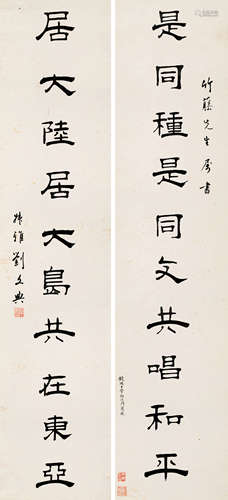 竹藤先生屬書
是同種是同文共唱和平
居大陸居大島共在東亞
劉文典